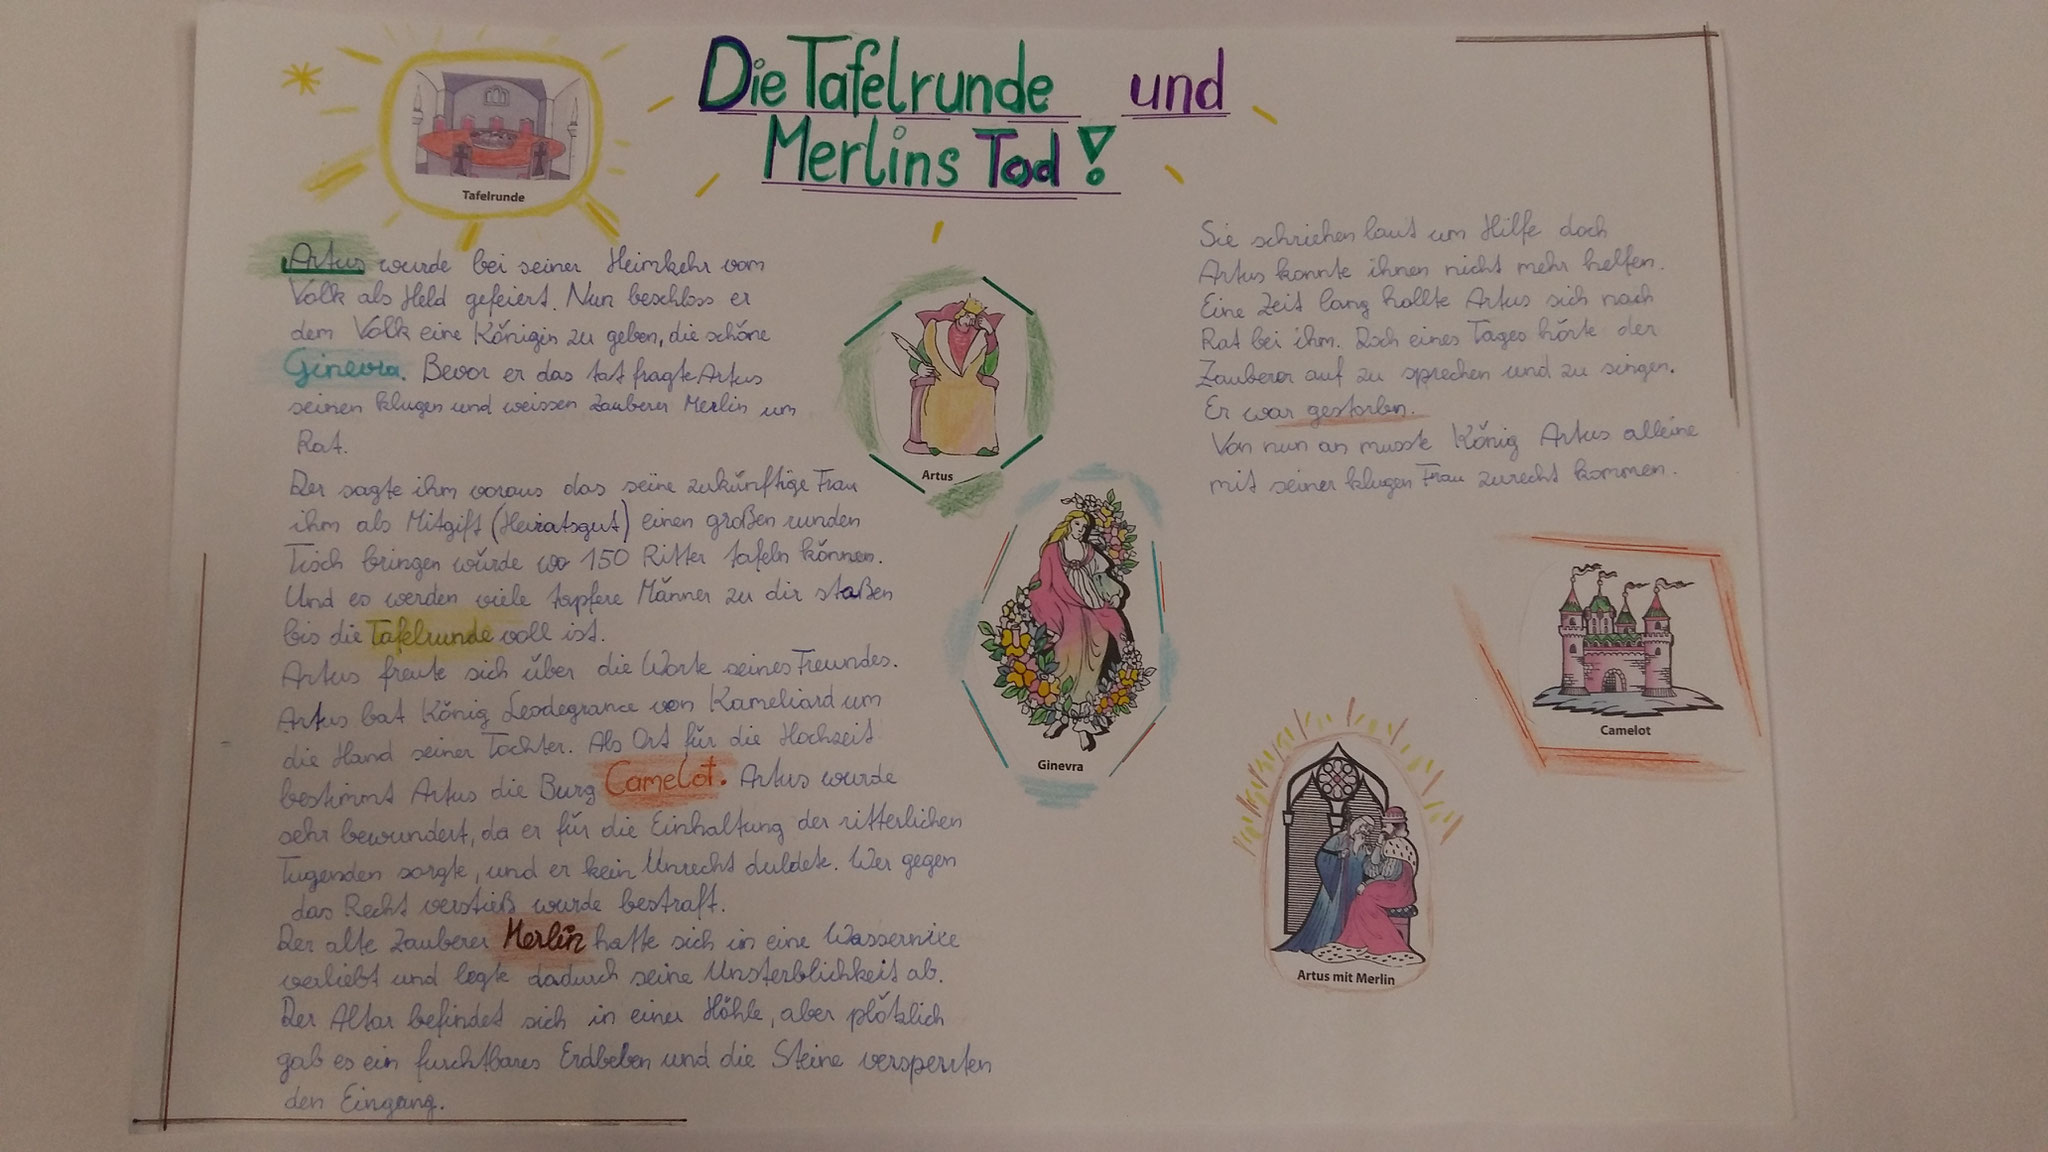 Die Tafelrunde und
Merlins Tod!
Tafelrunde
Artus wurde bei seiner Heimkehr vom
Volk als Held gefeiert. Nun beschloss er
dem Volk eine Königin zu geben, die schöne
Ginevra. Bevor er das tat fragte Artus
seinen klugen und weissen Zauberer Merlin um
Rat.
Der sagte ihm voraus das seine zukünftige Frau
ihm als Mitgift (Heiratsgut) einen großen runden
Tisch bringen würde wo 150 Ritter tafeln können.
Und es werden viele tapfere Männer zu dir staßen
bis die Tafelrunde voll ist.
Artus freute sich über die Worte seines Freundes.
Artus bat König Leodegrance von Kameliard um
die Hand seiner Tochter. Als Ort für die Hochzeit
bestimmt Artus die Burg Camelot. Artus wurde
sehr bewundert, da er für die Einhaltung der ritterlichen
Tugenden sorgte, und er kein Unrecht duldete. Wer gegen
das Recht verstieß wurde bestraft.
Der alte Zauberer Merlin hatte sich in eine Wassernixe
verliebt und legte dadurch seine Unsterblichkeit ab.
Der Altar befindet sich in einer Höhle, aber plötzlich
gab es ein furchtbares Erdbeben und die Steine versperrten
den Eingang.
Artus
Ginevra
Sie schriehen laut um Hilfe doch
Artus konnte ihnen nicht mehr helfen.
Eine Zeit lang hollte Artus sich nach
Rat bei ihm. Doch eines Tages hörte der
Zauberer auf zu sprechen und zu singen.
Er war gestorben.
Von nun an musste König Artus alleine
mit seiner klugen Frau zurecht kommen.
Camelot
Artus mit Merlin